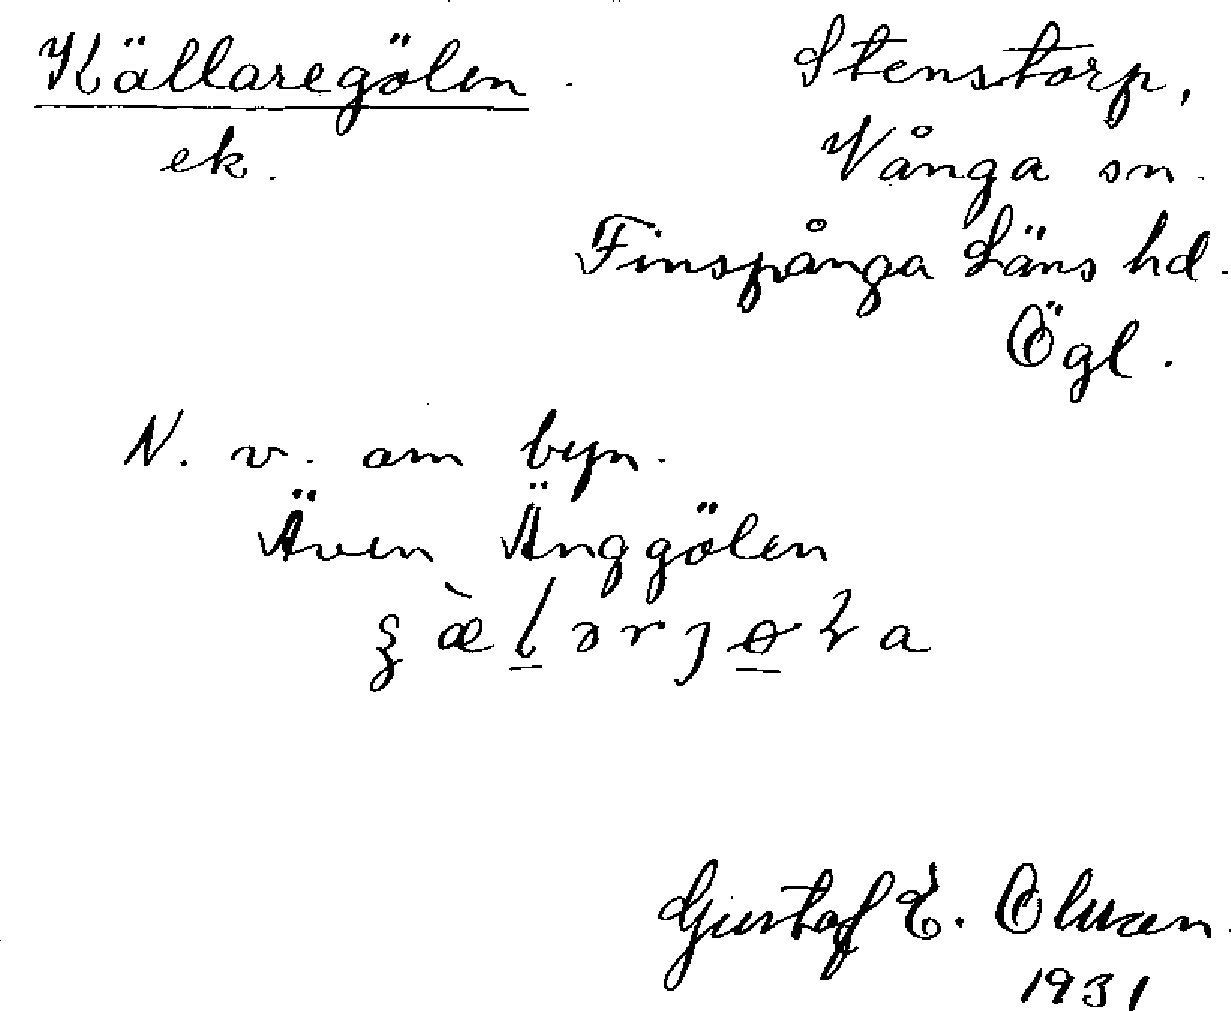 Källaregölen.
ek.
Stenstorp,
Vånga sn.
Finspånga Läns hd.
Ögl.
N. v. om byn.
Även Änggölen
Gustaf E. Olsson.
1931